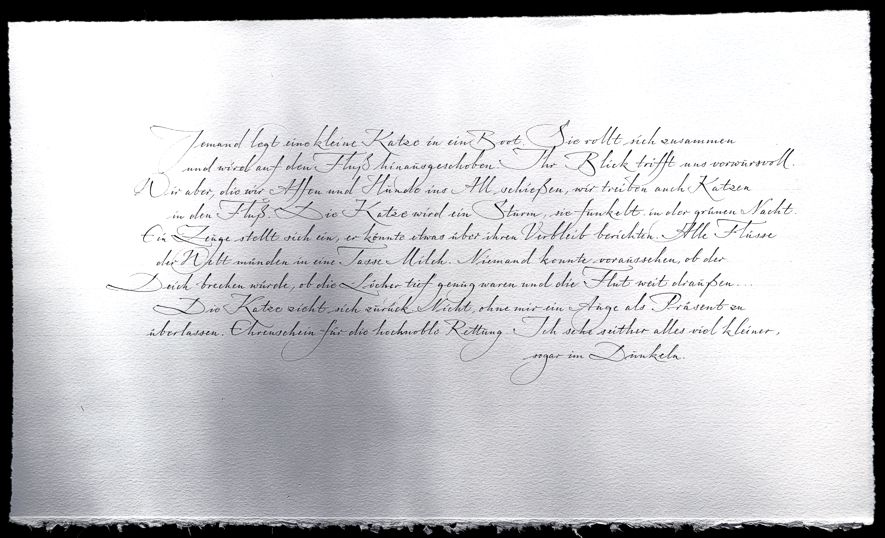 Jemand legt eine kleine Katze in ein Boot. Sie rollt sich zusammen
und wird auf den Fluß hinausgeschoben. Ihr Blick trifft uns vorwurfsvoll.
Wir aber, die wir Affen und Hunde ins All schießen, wir treiben auch Katzen
in den Fluß. Die Katze wird ein Sturm, sie funkelt in der grünen Nacht.
Ein Zeuge stellt sich ein, er könnte etwas über ihren Verbleib berichten. Alle Flüsse
der Welt münden in eine Tasse Milch. Niemand konnte voraussehen, ob der
Deich brechen würde, ob die Löcher tief genug waren und die Flut weit draußen...
Die Katze zieht sich zurück. Nicht, ohne mir ein Auge als Präsent zu
überlassen. Ehrenschein für die hochnoble Rettung. Ich sehe seither alles viel kleiner,
sogar im Dunkeln.